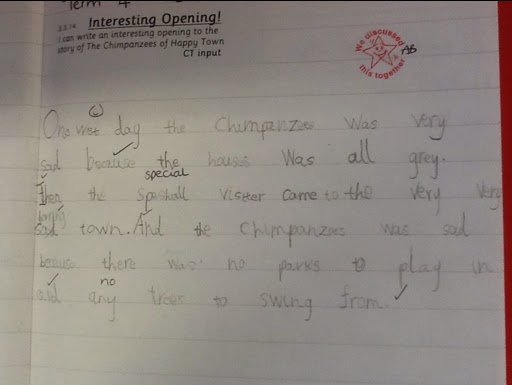 Term 4
5.3.14 Interesting Opening!
I can write an interesting opening to the
story of The Chimpanzees of Happy Town
CT input
We discussed
this together
AB
One wet day the Chimpanzees was very
sad because the houses was all grey.
special
Then the Speshall visiter came to the very very
boring
sad town. And the Chimpanzees was sad
because there was no parks to play in
no
and any trees to swing from.